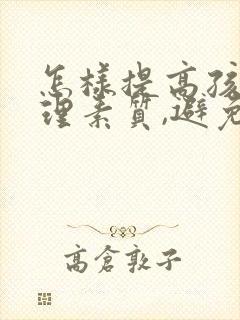 怎樣提高孩
理素質,避免
高倉敦子